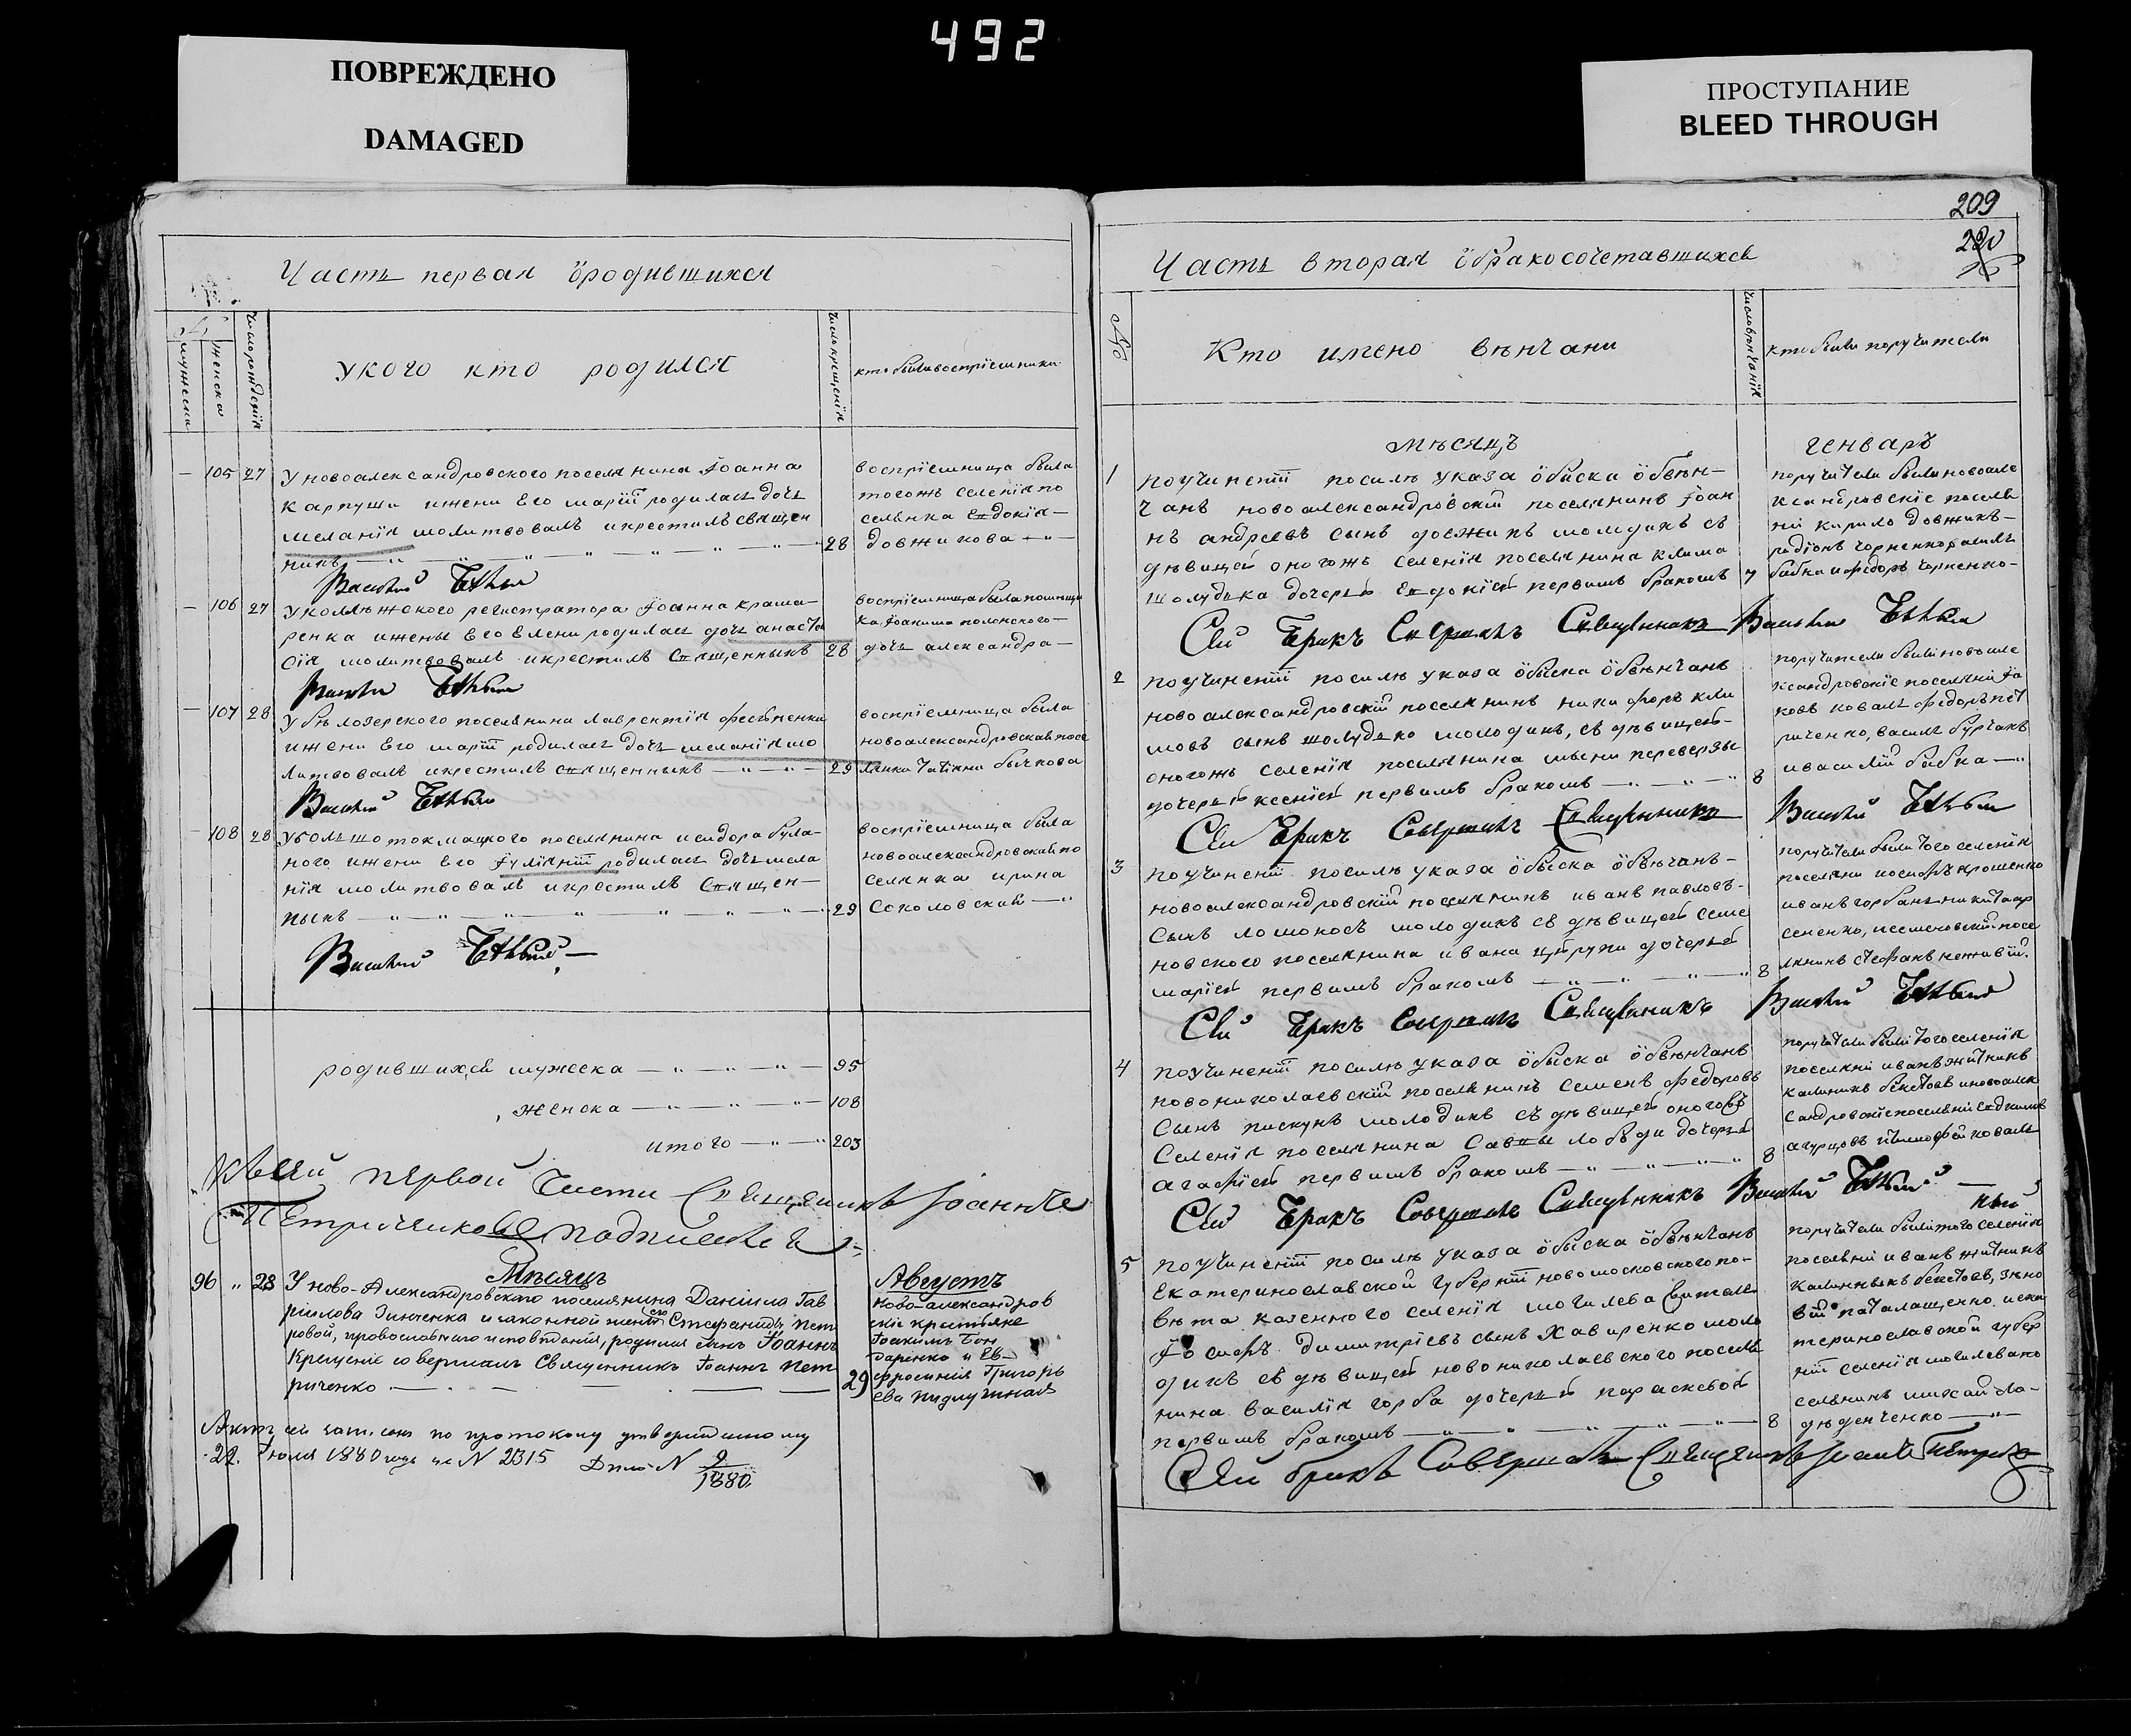 492
ПОВРЕЖДЕНО
DAMAGED
ПРОСТУПАНИЕ
BLEED THROUGH
Часть первая ōродившихся
мужеска
женска
число рожденія
у кого кто родился
число крещенія
кто были воспріемники
— 105 27 У новоалександровского поселянина Іоанна
Карпуши и жени Его маріи родилась дочь
меланія молитвовалъ и крестилъ священ
никъ 28
Василій
воспріемница была
тогожъ селенія по
селянка Евдокія
довжикова
— 106 27 У коллѣжского регистратора Іоанна краша-
ренка и жены Его Елени родилась дочь анаста
сія молитвовалъ и крестилъ Священныкъ 28
Василій
воспріемница была помѣщи
ка Іоакима полонского
дочь александра
— 107 28 У бѣлозерского поселянина лаврентія
и жени Его маріи родилась дочь меланія мо
литвовалъ и крестилъ священныкъ 29
Василій
воспріемница была
новоалександровская посе
лянка татіяна бычкова
108 28 У большотокмацкого поселянина исидора була-
ного и жени Его Іуліянии родилась дочь мела
нія молитвовалъ и крестилъ Священ-
ныкъ 29
Василій
воспріемница была
новоалександровская по
селянка ирина
Соколовская
родившихся мужеска 95
женска 108
итого 203
Къ сей первой Части Священникъ Іоаннъ
Петриченковъ подписался
Мѣсяцъ Августъ
96 " 28 У ново-Александровскаго поселянина Даніила Гав
риилова Зинченка и законной жены его Стефаниды Пет
ровой, православнаго исповѣданія, родился сынъ Іоаннъ
Крещеніе совершалъ Священникъ Іоаннъ Пет
риченко 29
Ново-александров
скіе крестьяне
Іоакимъ Бон
даренко и Ев-
фросинія Григорь
ева Пидлужная
Актъ сей запис. по протоколу утвержденному
22. Іюля 1880 года за N 2315 Дѣло N 9
1880.
209
Часть вторая ōбракосочетавшихся
№
Кто имено вѣнчани
число вѣнчанія
кто были поручители
мѣсяцъ генварь
1 по учинении по силѣ указа ōбыска ōбвѣн-
чанъ новоалександровскій поселянинъ Іоан
нъ андреевъ сынъ довжикъ молодикъ съ
дѣвицей оногожъ селенія поселянина клима
шолудька дочерью Евдокіей первимъ бракомъ 7
поручители были новоале
ксандровскіе поселя
ни кирило довжикъ-
радіонъ чорненко
бабка и федоръ чорненко-
Сей Бракъ Совершалъ Священникъ Василій
2 по учинении по силѣ указа ōбыска ōбвѣнчанъ
новоалександровскій поселянинъ никифоръ кли
мовъ сынъ шолудько молодикъ, съ дѣвицей
оногожъ селенія поселянина переверзы
дочерью ксеніей первимъ бракомъ 8
поручители были новоале
ксандровскіе поселяни Іа
ковъ коваль федоръ пет
риченко, василь бурчакъ
и василій бабка
Сей Бракъ Совершалъ Священникъ Василій
3 по учинении по силѣ указа ōбыска ōбвѣнчанъ-
новоалександровскій поселянинъ иванъ павловъ-
сынъ ломоносъ молодикъ съ дѣвицей семе
новского поселянина ивана дочерью
маріей первимъ бракомъ 8
поручители были того селенія
поселяни иосифъ ярошенко
иванъ горбань никита ар
сененко, и семеновскій посе
лянинъ стефанъ неживій.
Сей Бракъ Совершалъ Священникъ Василій
4 по учинении по силѣ указа ōбыска ōбвѣнчанъ
новониколаевскій поселянинъ семенъ федоровъ
сынъ пискунъ молодикъ съ дѣвицей оногожъ
селенія поселянина Саввы лободи дочерью
агафіей первимъ бракомъ 8
поручители были того селенія
поселяни иванъ житникъ
калиникъ бекетовъ и новоалек
сандровскіе поселяни евдкимъ
агурцовъ и тимофей коваль
Сей Бракъ Совершалъ Священникъ Василій
5 по учинении по силѣ указа ōбыска ōбвѣнчанъ
Екатеринославской губернии новомосковского по-
вѣта казенного селенія могилева житель
Іосифъ димитріевъ сынъ Хавиренко моло
дикъ съ дѣвицей новониколаевского поселя
нина василія горба дочерью параскевой
первимъ бракомъ 8
поручители были того селенія
поселяни иванъ житникъ
калинныкъ бекетовъ, зѣно
вій паталащенко и ека
теринославской губер
нии селенія могилева по
селянинъ михайло
дѣденченко
Сей бракъ Совершалъ Священникъ Іоаннъ Петрич